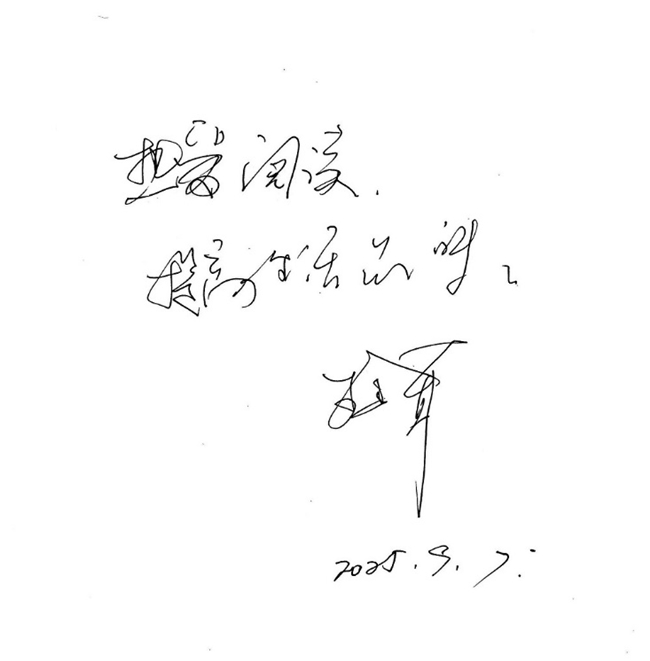 热爱阅读,
提高生活品味。
2025.9.7.